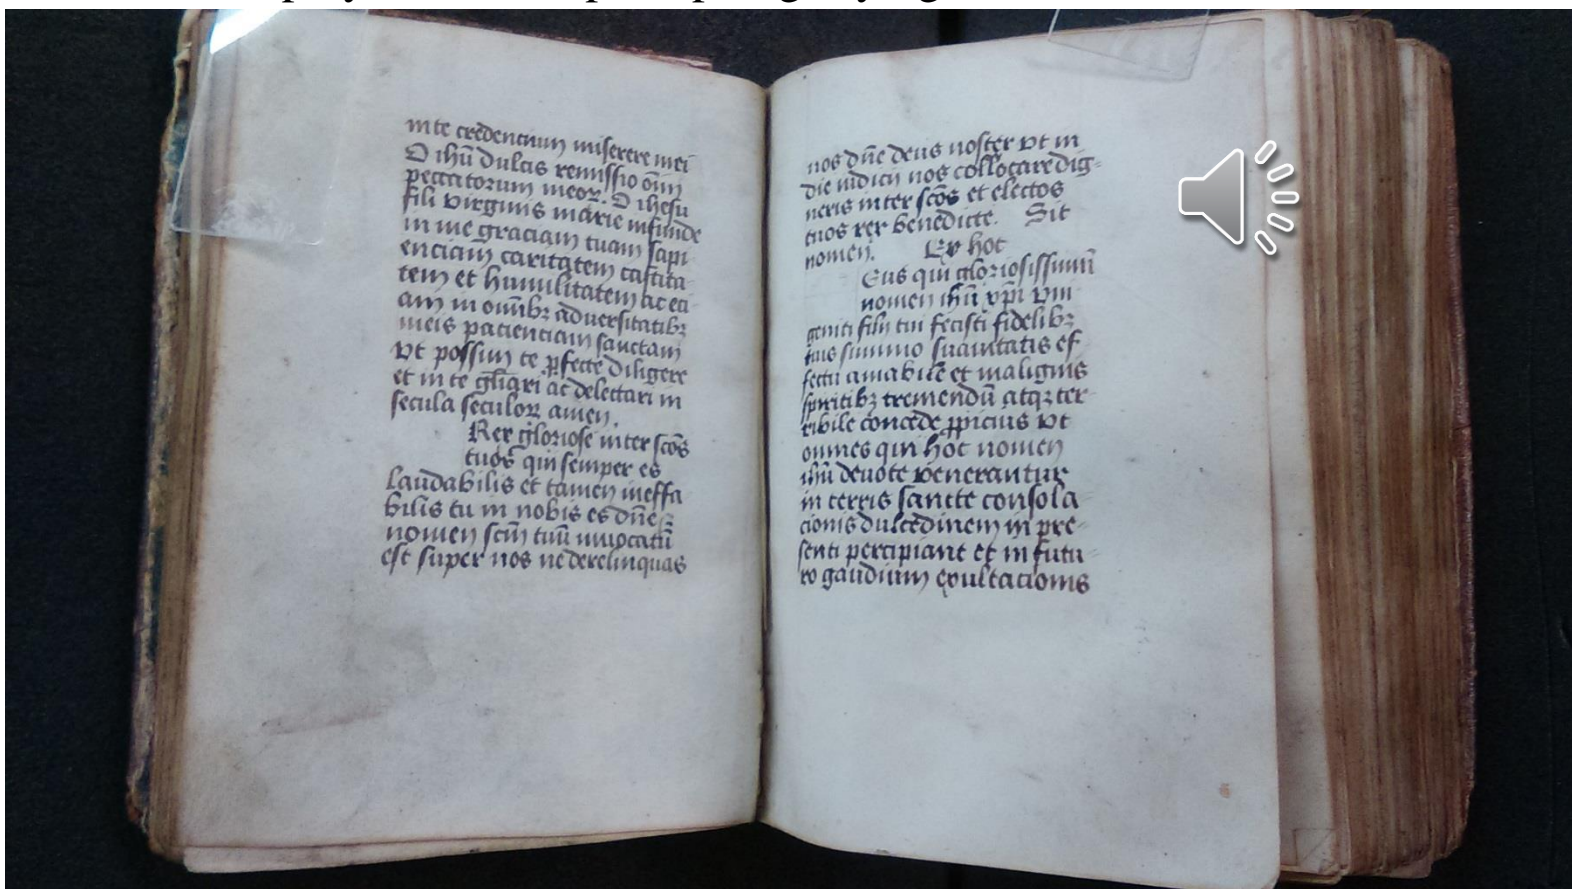 in te credencium miserere mei
O ihū dulcis remissio oīm
peccatorum meoꝝ. O ihesu
fili virginis marie infunde
in me graciam tuam sapi
enciam caritatem castita-
tem et humilitatem ac eci
am in omībꝫ aduersitatibꝫ
meis pacienciam sanctam
vt possim te ꝑfecte diligere
et in te gl̄iari ac delectari in
secula seculoꝝ amen.
Rex gloriose inter scōs
tuos qui semper es
laudabilis et tamen ineffa
bilis tu in nobis es dn̄e ⁊
nomen scm̄ tuū inuocatū
est super nos ne derelinquas
nos dn̄e deus noster vt in
die iudicii nos collocare dig-
neris inter scōs et electos
tuos rex benedicte. Sit
nomen. Ex hoc
Eus qui gloriosissimū
nomen ihū xp̄i vni
geniti filii tui fecisti fidelibꝫ
tuis summo suauitatis ef
fectu amabile et malignis
spiritibꝫ tremendū atqꝫ ter-
ribile concede ꝓpicius vt
omnes qui hoc nomen
ihū deuote venerantur
in terris sancte consola
cionis dulcedinem in pre-
senti percipiant et in futu
ro gaudium exultacionis